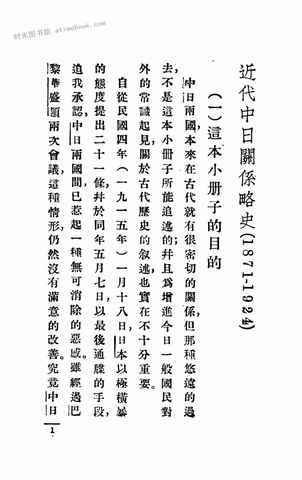 时光图书馆 atimebook.com
近代中日關係略史(1871-1924)
(一)這本小册子的目的
中日兩國本來在古代就有很密切的關係,但那種悠遠的過
去,不是這本小册子所能追述的,幷且爲增進今日一般國民對
外的常識起見,關於古代歷史的叙述也實在不十分重要。
自從民國四年(一九一五年)一月十八日,日本以極橫暴
的態度提出二十一條,幷於同年五月七日,以最後通牒的手段,
迫我承認,中日兩國間已惹起一種無可消除的惡感。雖經過巴
黎華盛頓兩次會議,這種情形,仍然沒有滿意的改善。究竟中日
1